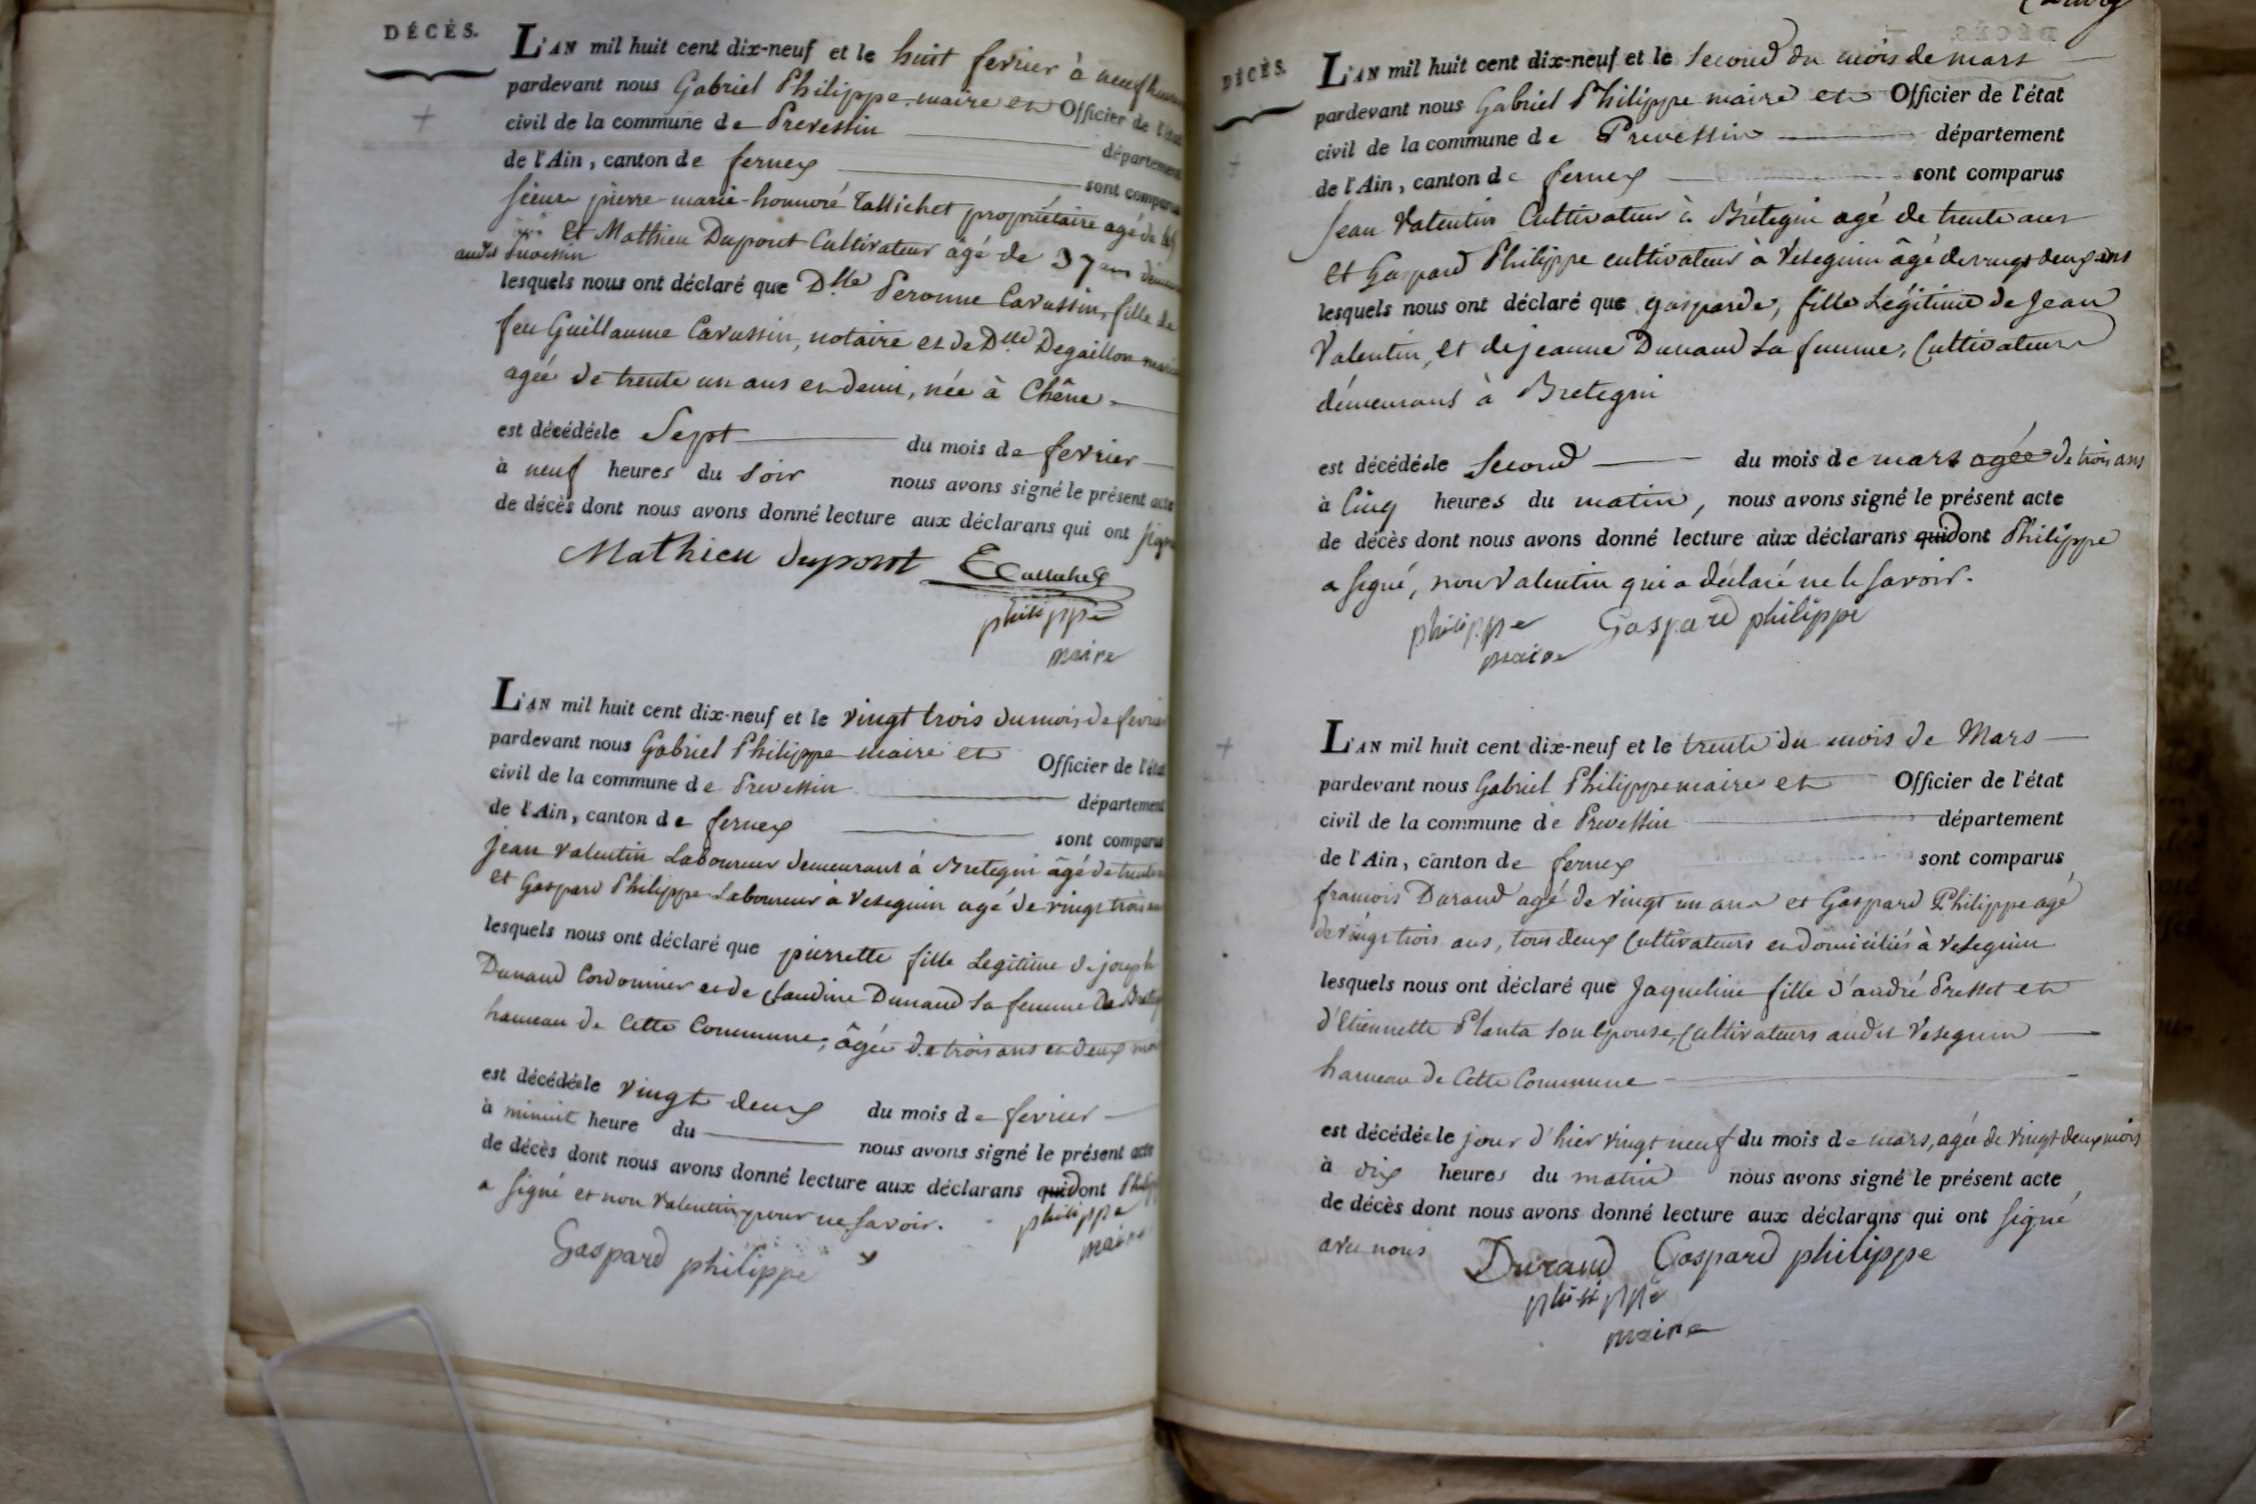 DÉCÈS.
L'AN mil huit cent dix-neuf et le huit fevrier à neuf heures
pardevant nous Gabriel Philippe maire et Officier de l'état
civil de la commune de Prevessin département
de l'Ain, canton de fernex sont comparus
sieur pierre-marie-honnoré tallichet propriétaire agé de
et Mathieu Dupont Cultivateur âgé de 37 ans
audit Prevessin
lesquels nous ont déclaré que Dlle Peronne Cavussin, fille de
feu Guillaume Cavussin, notaire et de Dlle Degaillon
agée de trente un ans et demi, née à Chêne
est décédée le Sept du mois de fevrier
à neuf heures du soir nous avons signé le présent acte
de décès dont nous avons donné lecture aux déclarans qui ont signé
Mathieu dupont Tallichet
philippe
maire
L'AN mil huit cent dix-neuf et le vingt trois du mois de fevrier
pardevant nous Gabriel Philippe maire et Officier de l'état
civil de la commune de Prevessin département
de l'Ain, canton de fernex sont comparus
jean Valentin Laboureur demeurant à Bretegni âgé de trente
et Gaspard Philippe Laboureur à Vesegnin agé de vingt trois ans
lesquels nous ont déclaré que pierrette fille Legitime de joseph
Dunand Cordonnier et de Claudine Dunand sa femme de
hameau de Cette Commune, âgée de trois ans et deux mois
est décédée le vingt deux du mois de fevrier
à minuit heure du nous avons signé le présent acte
de décès dont nous avons donné lecture aux déclarans qui dont Philippe
a signé et non Valentin pour ne savoir.
philippe
maire
Gaspard philippe
DÉCÈS.
L'AN mil huit cent dix-neuf et le second du mois de mars
pardevant nous Gabriel Philippe maire et Officier de l'état
civil de la commune de Prevessin département
de l'Ain, canton de fernex sont comparus
Jean Valentin Cultivateur à Brétegni agé de trente ans
et Gaspard Philippe cultivateur à Vesegnin âgé de vingt deux ans
lesquels nous ont déclaré que gasparde, fille Légitime de Jean
Valentin, et de jeanne Dunand sa femme, Cultivateurs
demeurans à Bretegni
est décédée le second du mois de mars agée de trois ans
à cinq heures du matin, nous avons signé le présent acte
de décès dont nous avons donné lecture aux déclarans qui dont Philippe
a signé, non Valentin qui a déclaré ne le savoir.
philippe Gaspard philippe
maire
L'AN mil huit cent dix-neuf et le trente du mois de Mars
pardevant nous Gabriel Philippe maire et Officier de l'état
civil de la commune de Prevessin département
de l'Ain, canton de fernex sont comparus
francois Durand agé de vingt un ans et Gaspard Philippe agé
de vingt trois ans, tous deux Cultivateurs et domiciliés à Vesegnin
lesquels nous ont déclaré que Jaqueline fille d'andré Presset et
d'Etiennette Planta son épouse, Cultivateurs audit Vesegnin
hameau de Cette Commune
est décédée le jour d'hier vingt neuf du mois de mars, agée de vingt deux mois
à dix heures du matin nous avons signé le présent acte
de décès dont nous avons donné lecture aux déclarans qui ont signé
avec nous Durand Gaspard philippe
philippe
maire